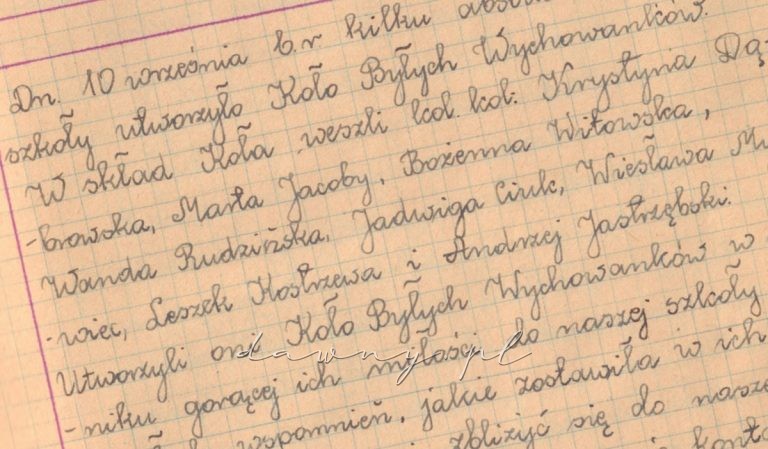 Dn. 10 września b.r kilku
szkoły utworzyło Koło Byłych Wychowanków.
W skład Koła weszli kol. kol: Krystyna Dą
-browska, Marta Jacoby, Bożenna Witowska,
Wanda Rudzińska, Jadwiga Ciuk, Wiesława
-wiec, Leszek Kostrzewa i Andrzej Jastrzębski.
Utworzyli oni Koło Byłych Wychowanków w
-niku gorącej ich miłości do naszej szkoły
wspomnień, jakie zostawiła w ich
zbliżyć się do
dawny.pl